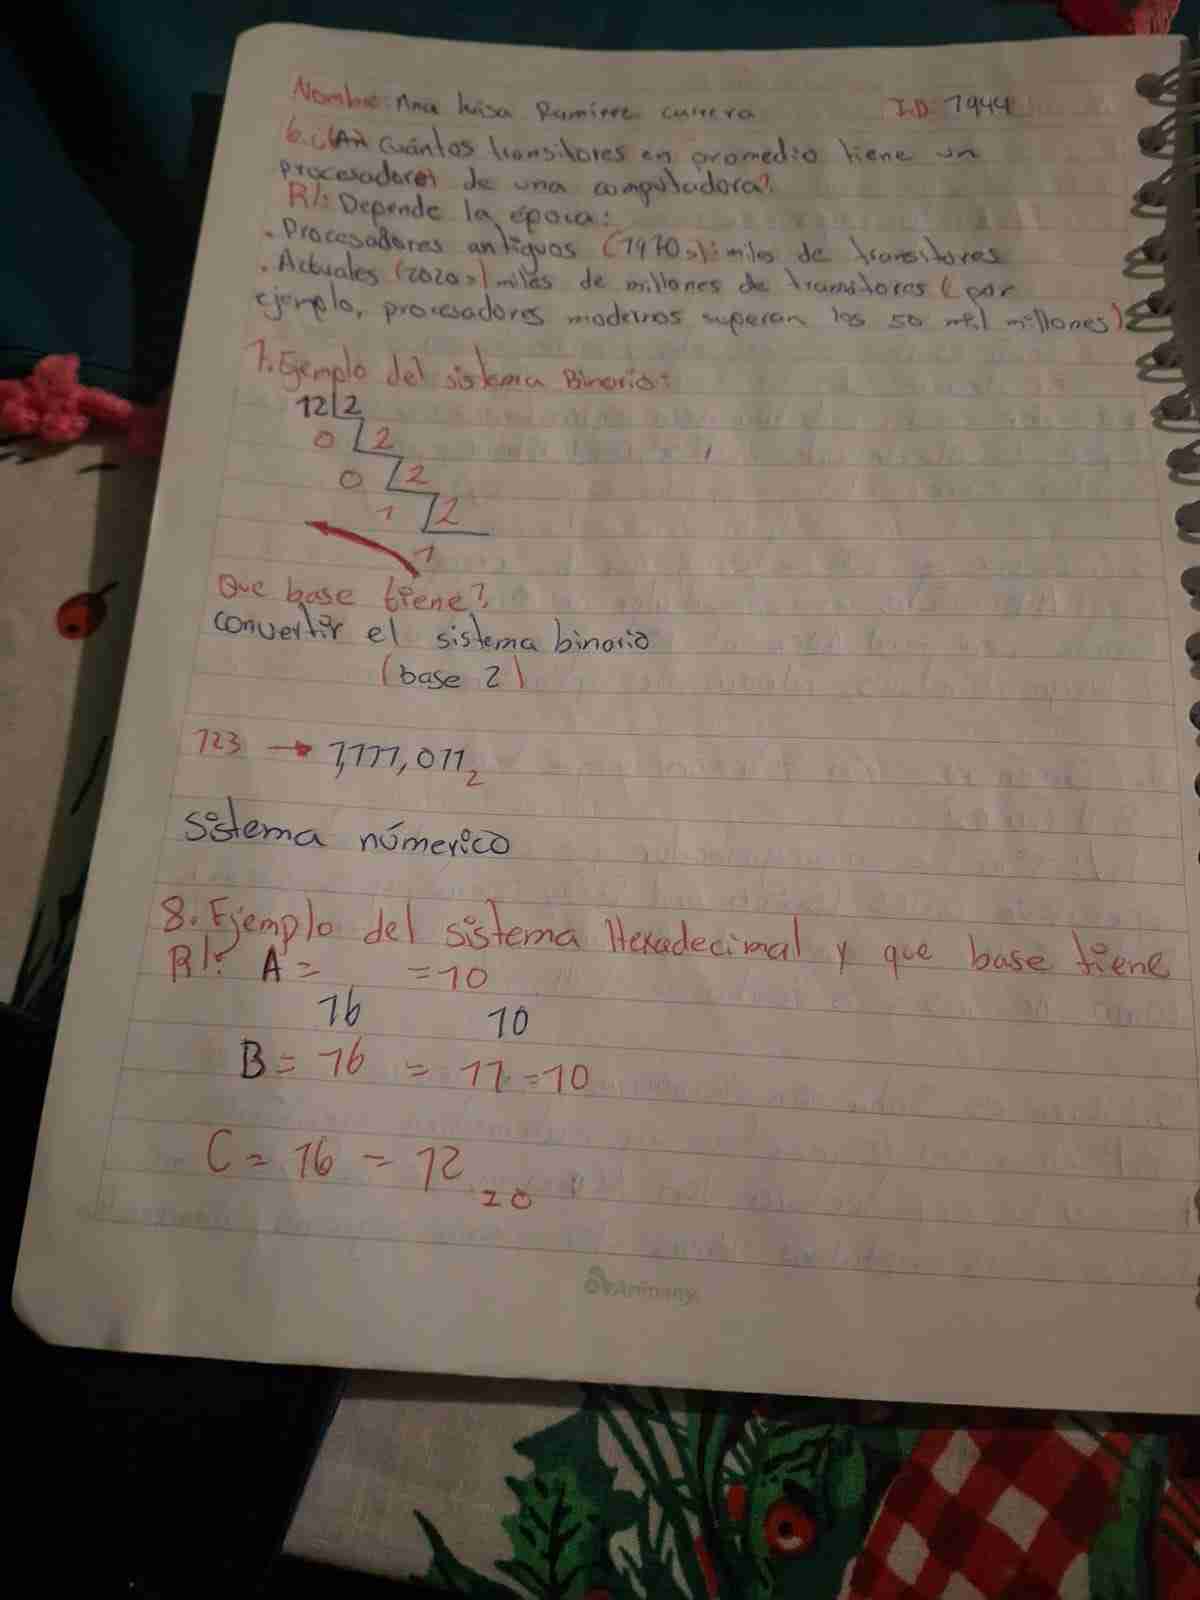 Nombre: Ana luisa Ramirez currera I.D: 1944
6. Cuántos transitores en promedio tiene un
procesador de una computadora?
R/: Depende la época:
. Procesadores antiguos (1970s): miles de transitores
. Actuales (2020s) miles de millones de transitores (por
ejemplo, procesadores modernos superan los 50 mil millones)
7. Ejemplo del sistema Binario:
12 2
0 2
0 2
1 2
1
Que base tiene?
convertir el sistema binario
(base 2)
123 → 1,111,011₂
sistema númerico
8. Ejemplo del sistema Hexadecimal y que base tiene
R/: A = = 10
16 10
B = 16 = 11 = 10
C = 16 = 12